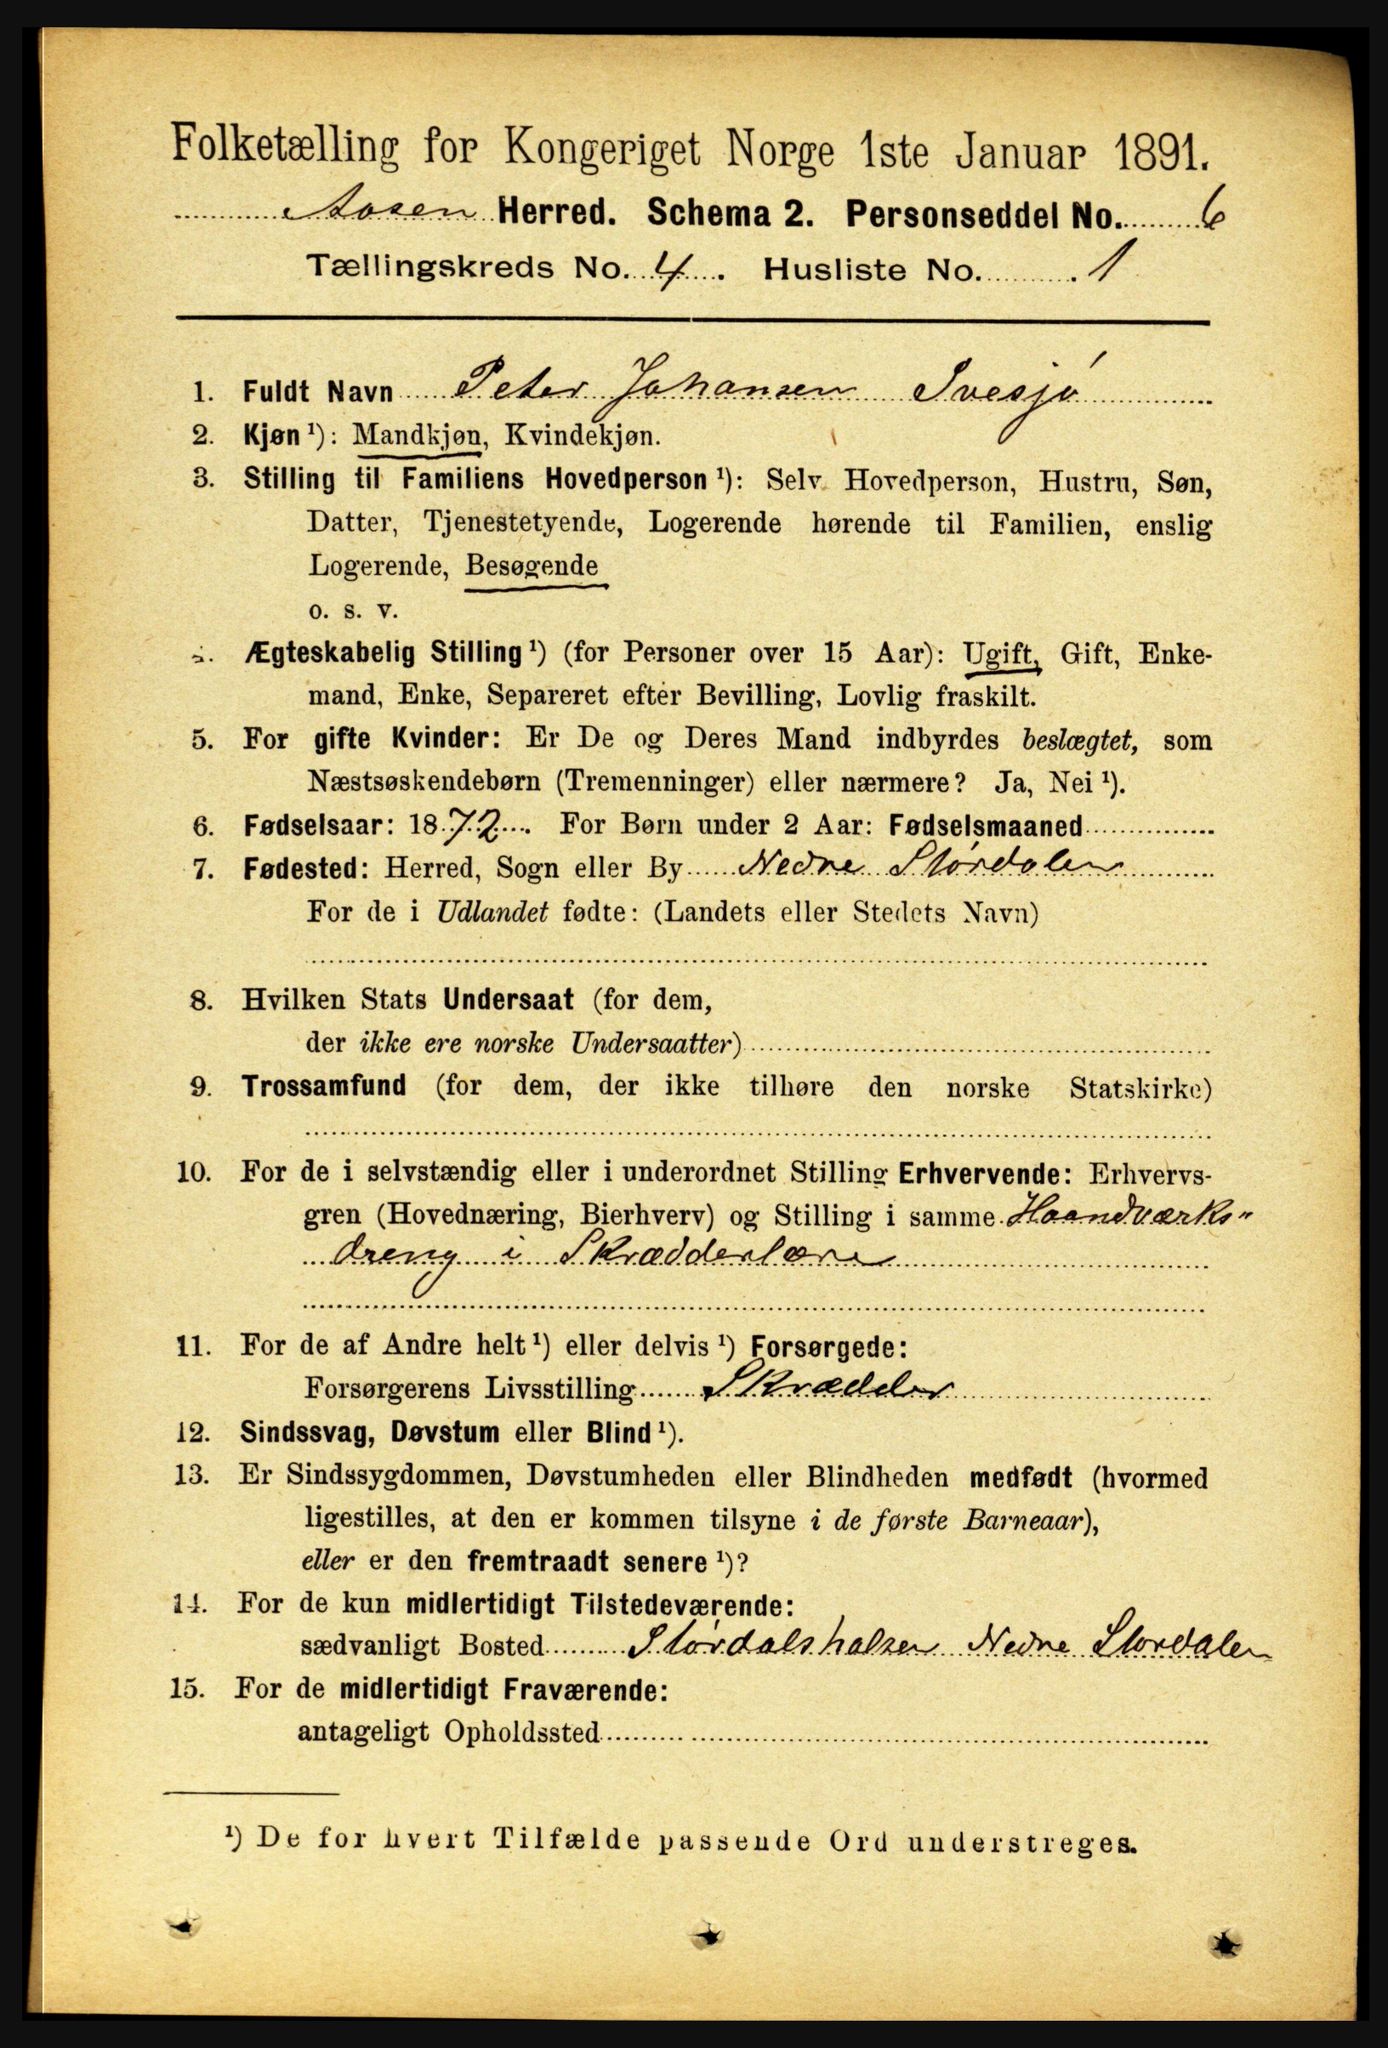 Folketælling for Kongeriget Norge 1ste Januar 1891.
Aasen Herred. Schema 2. Personseddel No. 6
Tællingskreds No. 4. Husliste No. 1
1. Fuldt Navn Peter Johansen Svesjø
2. Kjøn ¹): Mandkjøn, Kvindekjøn.
3. Stilling til Familiens Hovedperson ¹): Selv Hovedperson, Hustru, Søn,
Datter, Tjenestetyende, Logerende hørende til Familien, enslig
Logerende, Besøgende
o. s. v.
4. Ægteskabelig Stilling ¹) (for Personer over 15 Aar): Ugift, Gift, Enke-
mand, Enke, Separeret efter Bevilling, Lovlig fraskilt.
5. For gifte Kvinder: Er De og Deres Mand indbyrdes beslægtet, som
Næstsøskendebørn (Tremenninger) eller nærmere? Ja, Nei ¹).
6. Fødselsaar: 1872. For Børn under 2 Aar: Fødselsmaaned
7. Fødested: Herred, Sogn eller By Nedre Størdalen
For de i Udlandet fødte: (Landets eller Stedets Navn)
8. Hvilken Stats Undersaat (for dem,
der ikke ere norske Undersaatter)
9. Trossamfund (for dem, der ikke tilhøre den norske Statskirke)
10. For de i selvstændig eller i underordnet Stilling Erhvervende: Erhvervs-
gren (Hovednæring, Bierhverv) og Stilling i samme Haandværks-
dreng i Skrædderlære
11. For de af Andre helt ¹) eller delvis ¹) Forsørgede:
Forsørgerens Livsstilling Skrædder
12. Sindssvag, Døvstum eller Blind ¹).
13. Er Sindssygdommen, Døvstumheden eller Blindheden medfødt (hvormed
ligestilles, at den er kommen tilsyne i de første Barneaar),
eller er den fremtraadt senere ¹)?
14. For de kun midlertidigt Tilstedeværende:
sædvanligt Bosted Størdalshalsen Nedre Størdalen
15. For de midlertidigt Fraværende:
antageligt Opholdssted
¹) De for hvert Tilfælde passende Ord understreges.